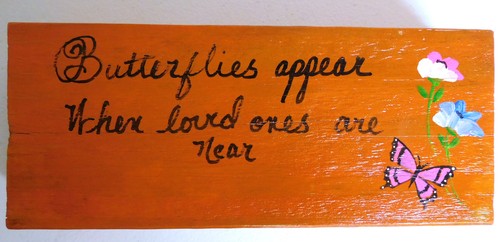 Butterflies appear
When lovd ones are
Near